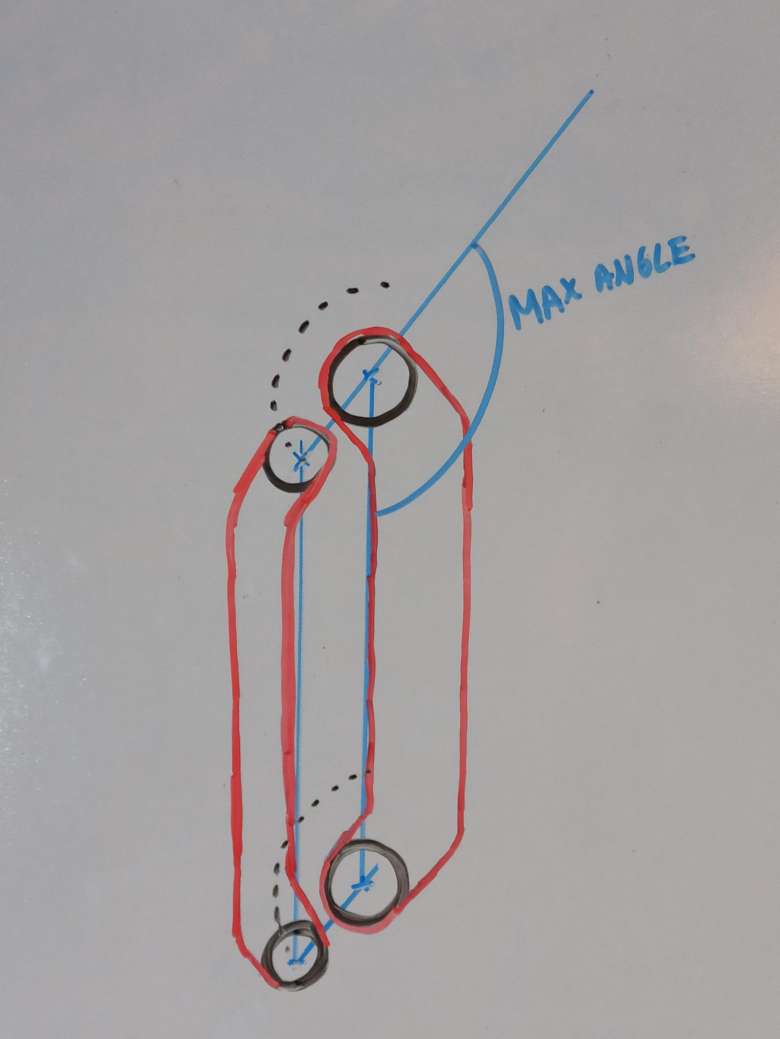 MAX ANGLE